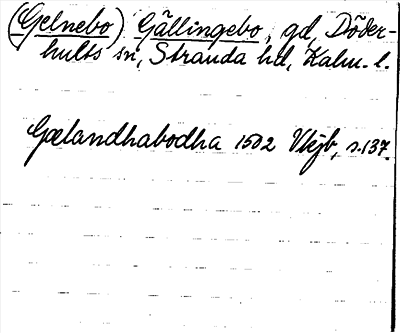 (Gelnebo) Gällingebo, gd, Döder-
hults sn, Stranda hd, Kalm. l.
Gælandhabodha 1502 Vkjb, s.137.